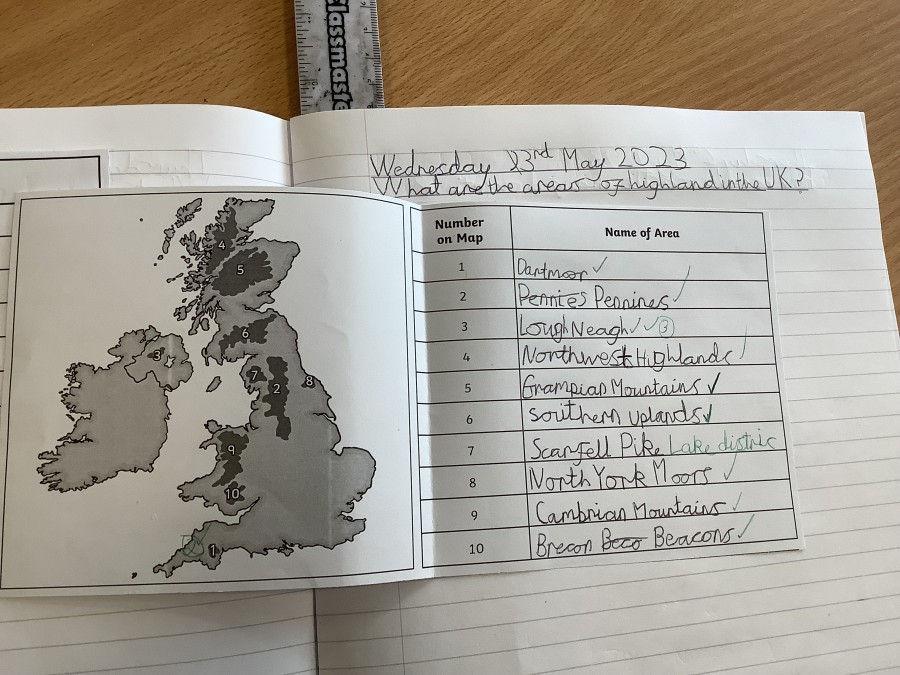 Classmas
Wednesday 23rd May 2023
What are the areas of highland in the UK?
Number on Map
Name of Area
1 Dartmoor ✓
2 Pennies Pennines
3 Lough Neagh ✓✓ 3
4 Northwest Highlands
5 Grampian Mountains ✓
6 Southern uplands ✓
7 Scarfell Pike Lake distric
8 North York Moors ✓
9 Cambrian Mountains ✓
10 Brecon Beco Beacons ✓
4
5
6
3
7
2
8
9
10
1